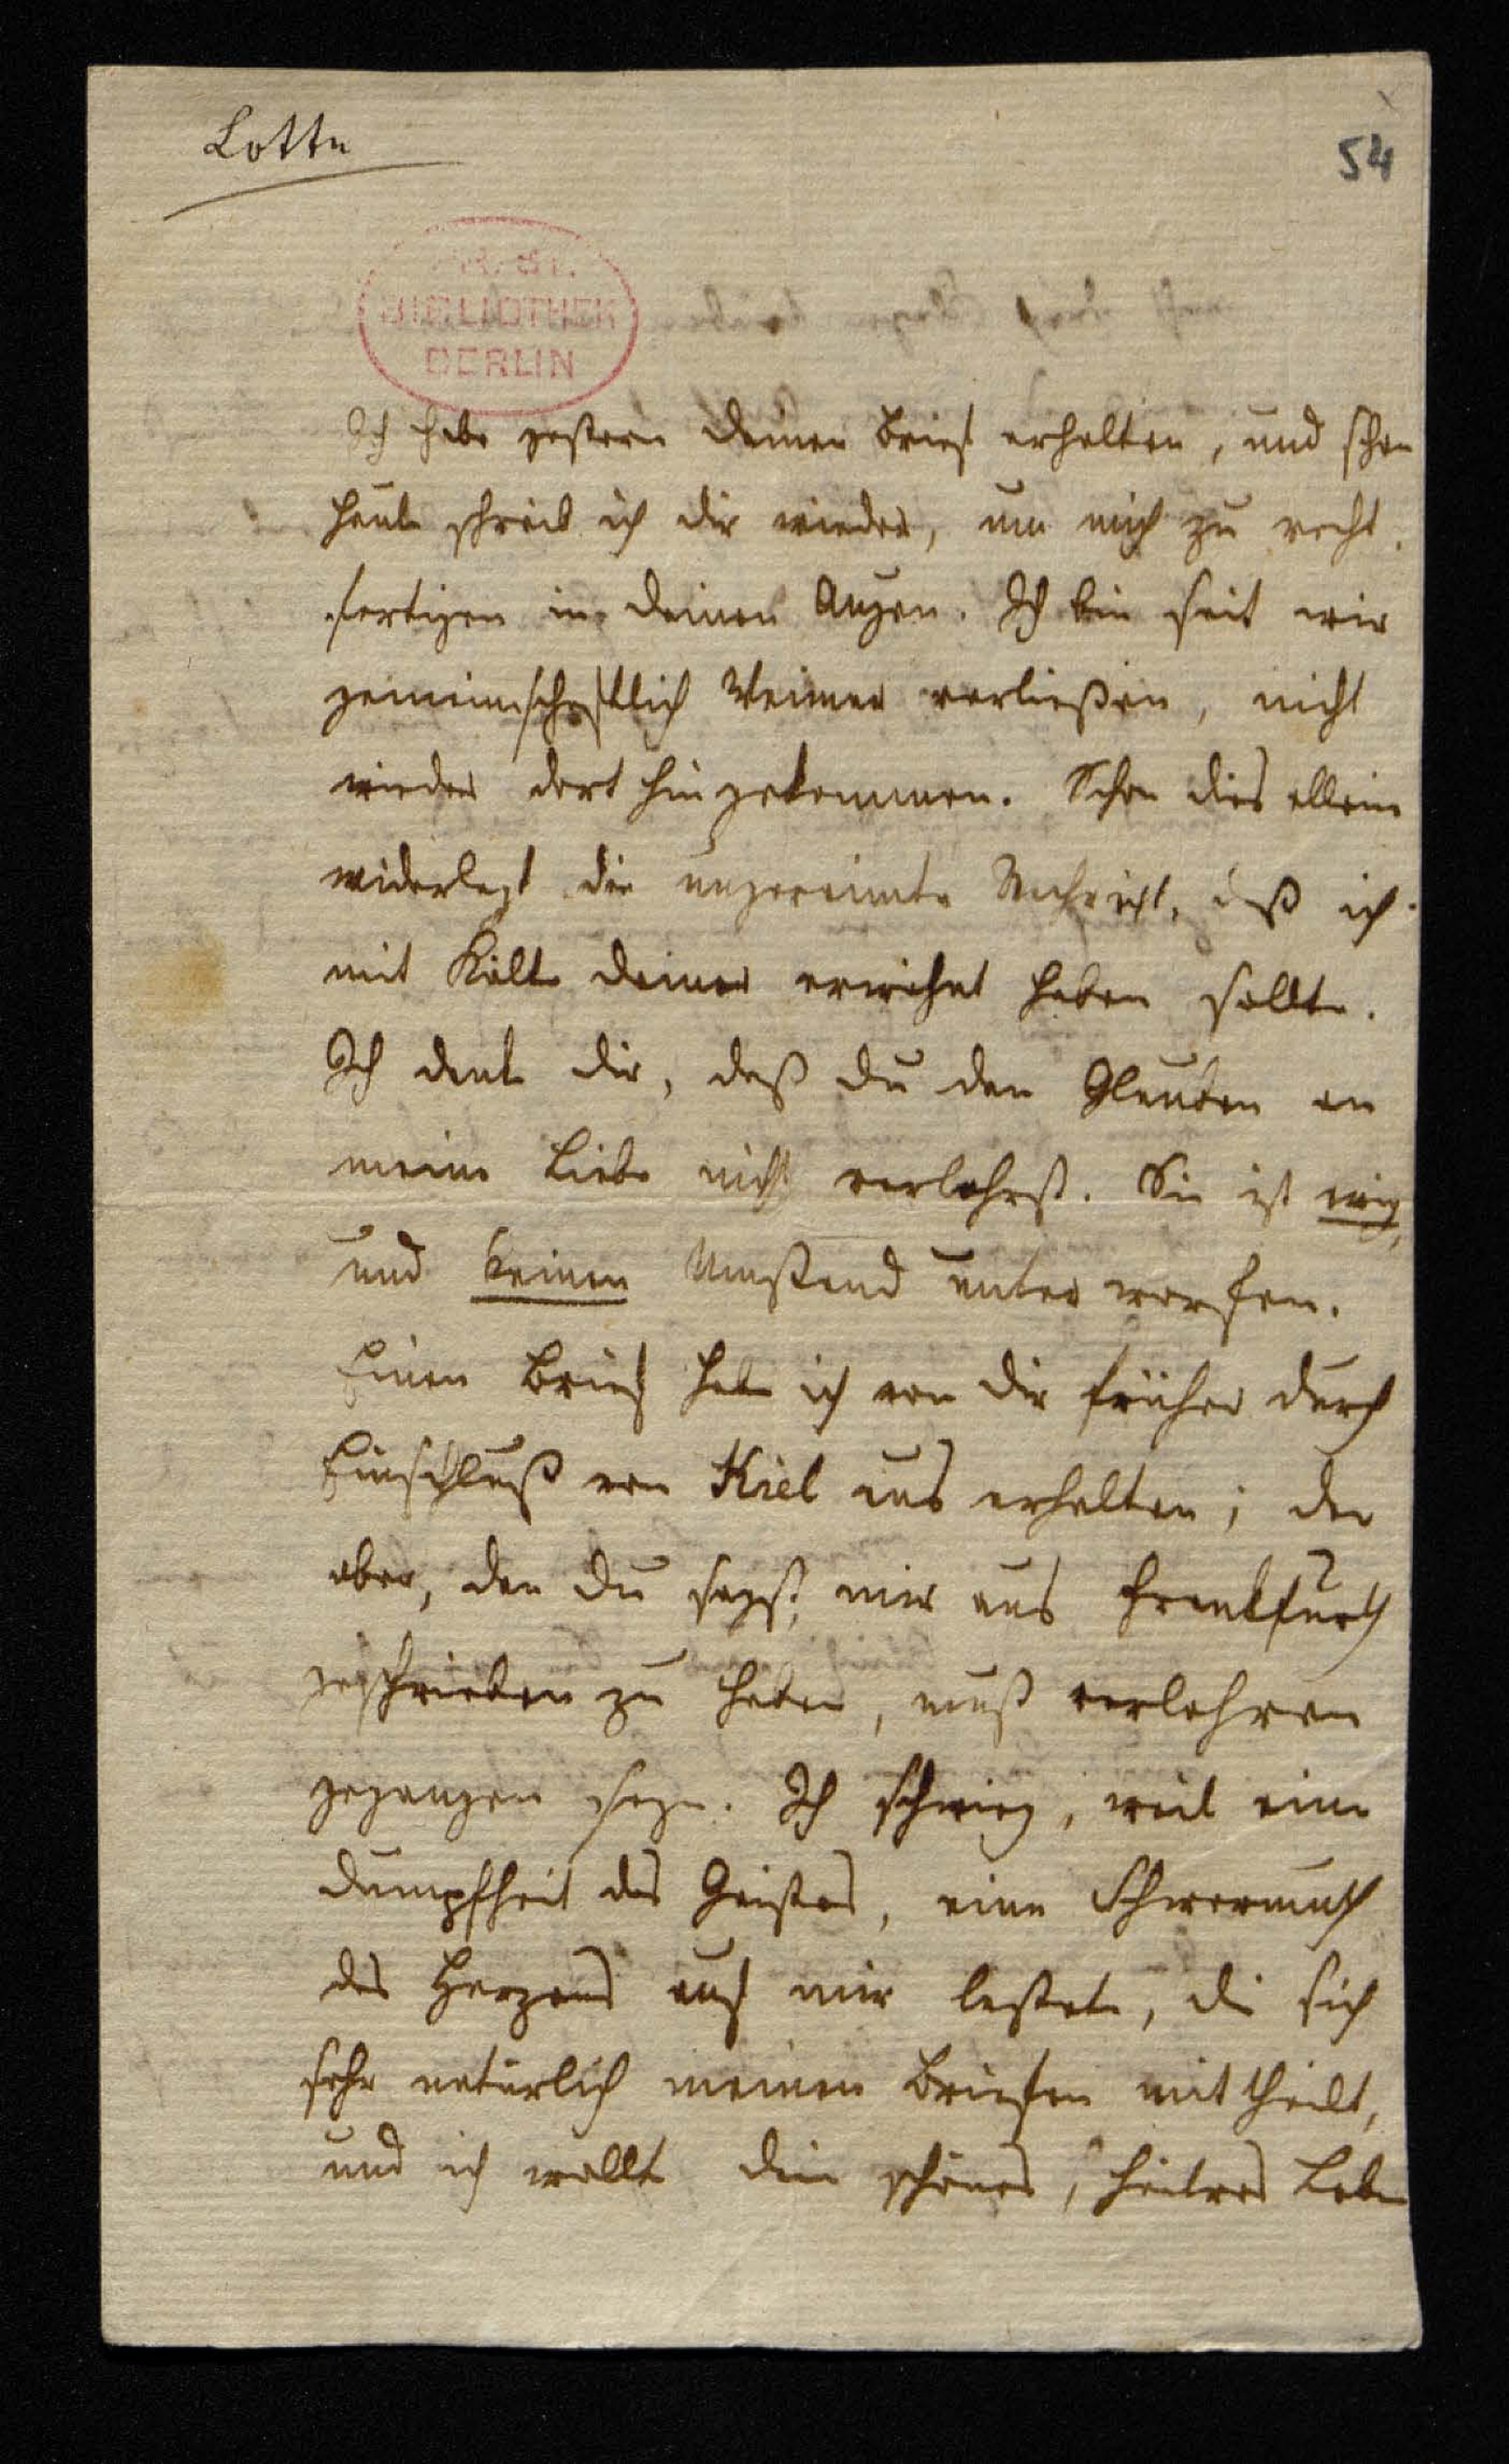 Lotte
54
PR. ST.
BIBLIOTHEK
BERLIN
Ich habe gestern deinen Brief erhalten, und schon
heute schreib ich dir wieder, um mich zu recht
fertigen in deinen Augen. Ich bin seit wir
gemeinschaftlich Weimar verließen, nicht
wieder dort hingekommen. Schon dies allein
widerlegt die ungereimte Nachricht, daß ich
mit Kälte deiner erwähnt haben sollte.
Ich dank dir, daß du den Glauben an
meine Liebe nicht verlohrst. Sie ist ewig,
und keinem Umstand unter worfen.
Einen Brief habe ich von dir früher durch
Einschluß von Kiel aus erhalten; der
aber, den du sagst, mir aus Frankfurth
geschrieben zu haben, muß verlohren
gegangen seyn. Ich schwieg, weil eine
Dumpfheit des Geistes, eine Schwermuth
des Herzens auf mir lastete, die sich
sehr natürlich meinen Briefen mit theilt,
und ich wollte dein schönes, heitres Leben